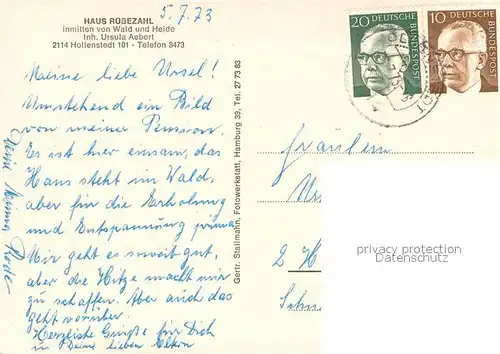 5.7.73
HAUS RÜBEZAHL
inmitten von Wald und Heide
Inh. Ursula Aebert
2114 Hollenstedt 101 - Telefon 8473
Meine liebe Ursel!
Umstehend ein Bild
von meiner Pension.
Es ist hier einsam, das
Haus steht im Wald,
aber für die Erholung
und Entspannung prima
Mir geht es soweit gut,
aber die Hitze macht mir
zu schaffen. Aber auch das
geht vorüber.
Herzliche Grüße für Dich
u Deine lieben Eltern
Deine Minna Rode
Gertr. Stallmann, Fotowerkstatt, Hamburg 39, Tel. 27 73 83
20 DEUTSCHE BUNDESPOST
10 DEUTSCHE BUNDESPOST
Fräulein
2 H
privacy protection
Datenschutz